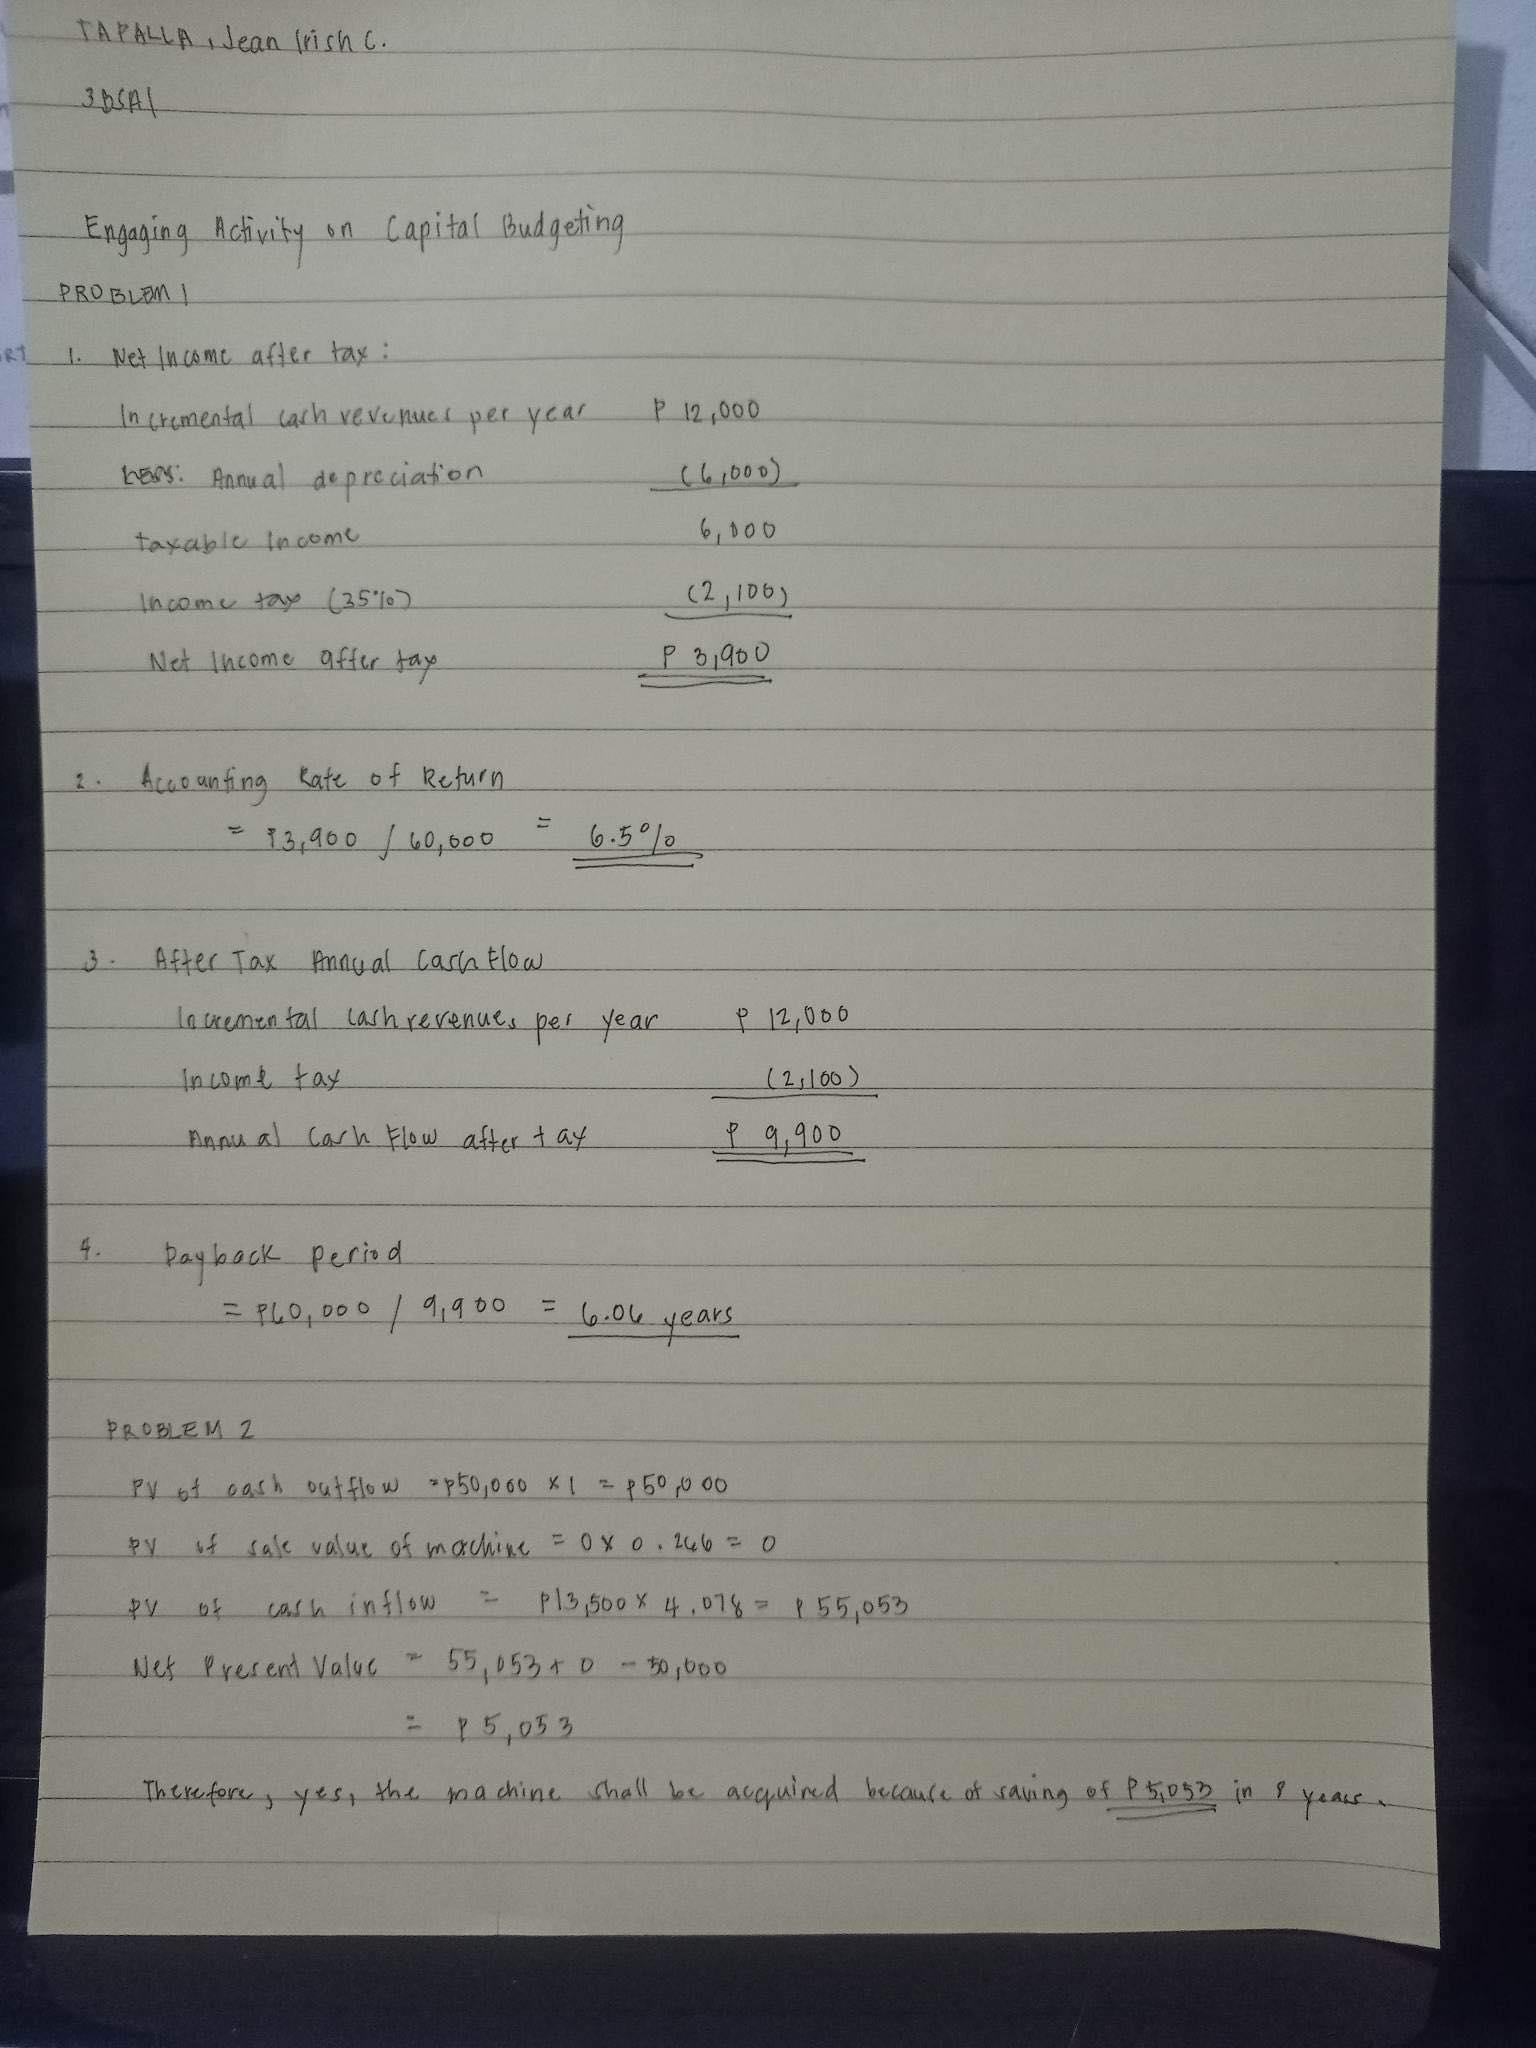 TAPALLA, Jean Irish C.
3BSA1
Engaging Activity on Capital Budgeting
PROBLEM 1
1. Net Income after tax:
Incremental cash revenues per year ₱ 12,000
Less: Annual depreciation (6,000)
Taxable Income 6,000
Income tax (35%) (2,100)
Net Income after tax ₱ 3,900
2. Accounting Rate of Return
= ₱3,900 / 60,000 = 6.5%
3. After Tax Annual Cash Flow
Incremental cash revenues per year ₱ 12,000
Income tax (2,100)
Annual Cash Flow after tax ₱ 9,900
4. Payback period
= ₱60,000 / 9,900 = 6.06 years
PROBLEM 2
PV of cash outflow = ₱50,000 x 1 = ₱50,000
PV of sale value of machine = 0 x 0.266 = 0
PV of cash inflow = ₱13,500 x 4.078 = ₱55,053
Net Present Value = 55,053 + 0 - 50,000
= ₱5,053
Therefore, yes, the machine shall be acquired because of saving of ₱5,053 in 8 years.